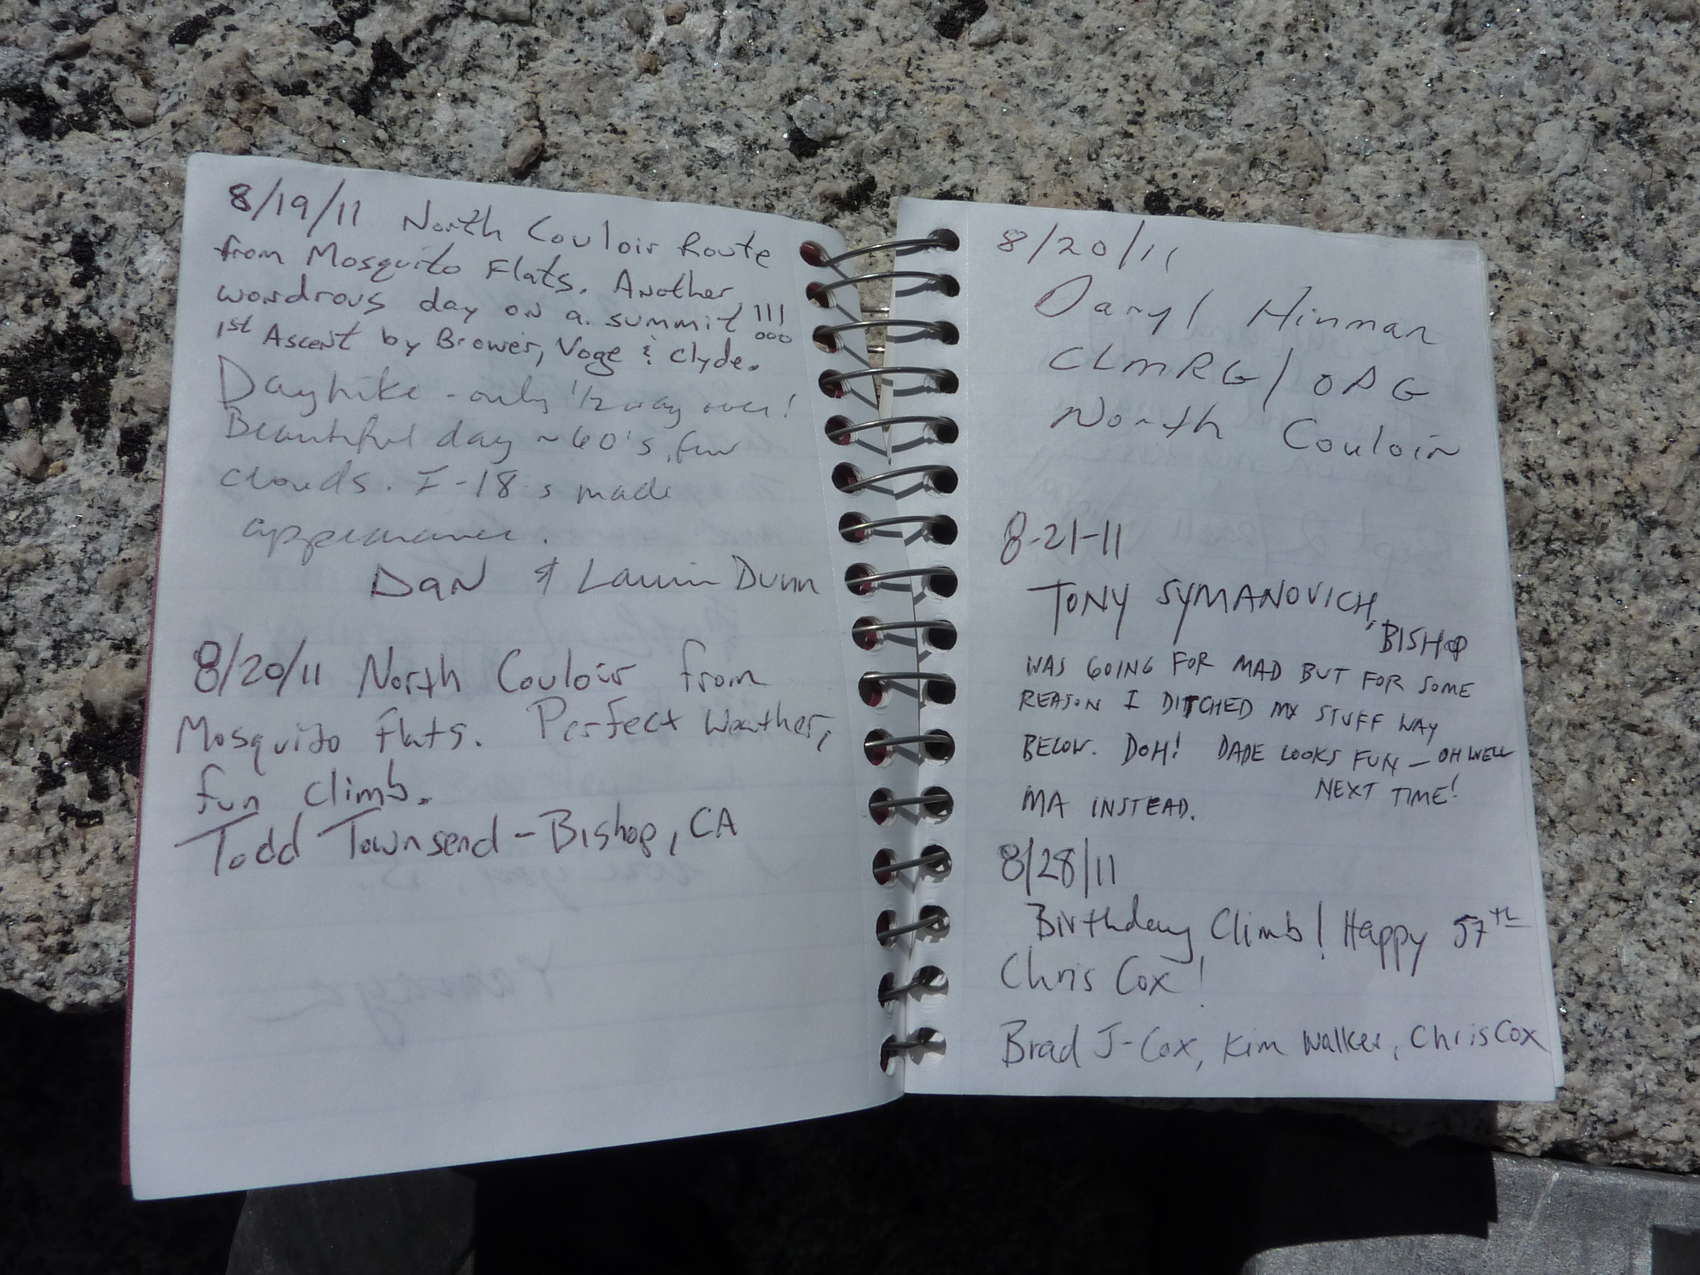 8/19/11 North Couloir Route
from Mosquito Flats. Another
wondrous day on a summit!!!
1st Ascent by Brower, Voge & Clyde.
Dayhike - only 1/2 way over!
Beautiful day ~60's, few
clouds. F-18's made
appearance.
Dan & Laurin Dunn
8/20/11 North Couloir from
Mosquito Flats. Perfect Weather,
fun climb.
Todd Townsend - Bishop, CA
8/20/11
Daryl Hinman
CLMRG/
North Couloir
8-21-11
TONY SYMANOVICH,
BISHOP
WAS GOING FOR MAD BUT FOR SOME
REASON I DITCHED MY STUFF WAY
BELOW. DOH! DADE LOOKS FUN - OH WELL
NEXT TIME!
MA INSTEAD.
8/28/11
Birthday Climb! Happy 57th
Chris Cox!
Brad J-Cox, Kim Walker, Chris Cox